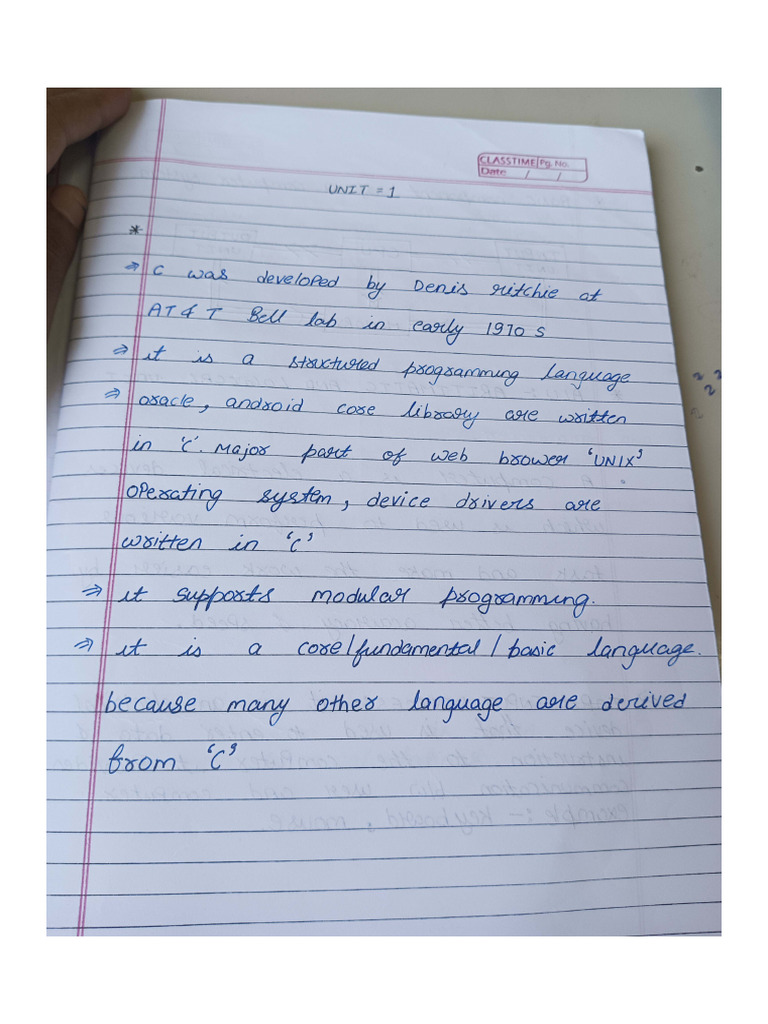 CLASSTIME Pg. No.
Date / /
UNIT = 1
*
⇒ C was developed by Denis Ritchie at
AT & T Bell lab in early 1970 s
⇒ it is a structured programming language
⇒ oracle, android core library are written
in 'C'. Major part of web brower 'UNIX'
operating system, device drivers are
written in 'C'
⇒ it supports modular programming.
⇒ it is a core/fundamental/basic language.
because many other language are derived
from 'C'